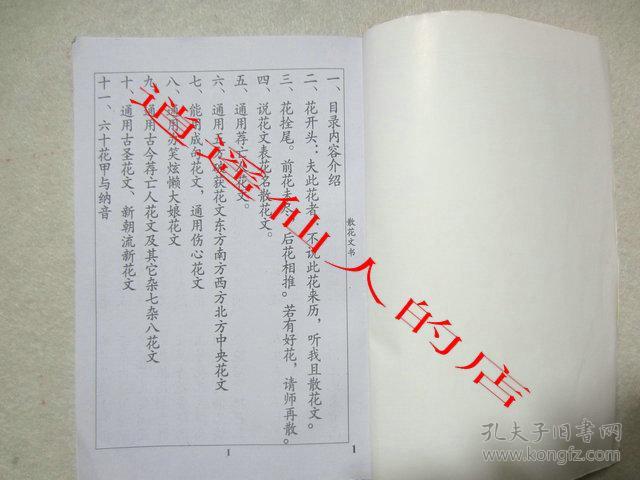 一、目录内容介绍
二、花开头：夫此花者：不说此花来历，听我且散花文。
三、花拴尾。前花未尽，后花相推。若有好花，请师再散。
四、说花文表花名散花文。
五、通用荐亡人花文。
六、通用五方 获花文东方南方西方北方中央花文
七、能用成句花文，通用伤心花文
八、通用 笑炫懒大娘花文
九、通用古今荐亡人花文及其它杂七杂八花文
十、通用古圣花文、新朝流新花文
十一、六十花甲与纳音
散花文书
1
1
逍遥仙人的店
孔夫子旧书网
www.kongfz.com